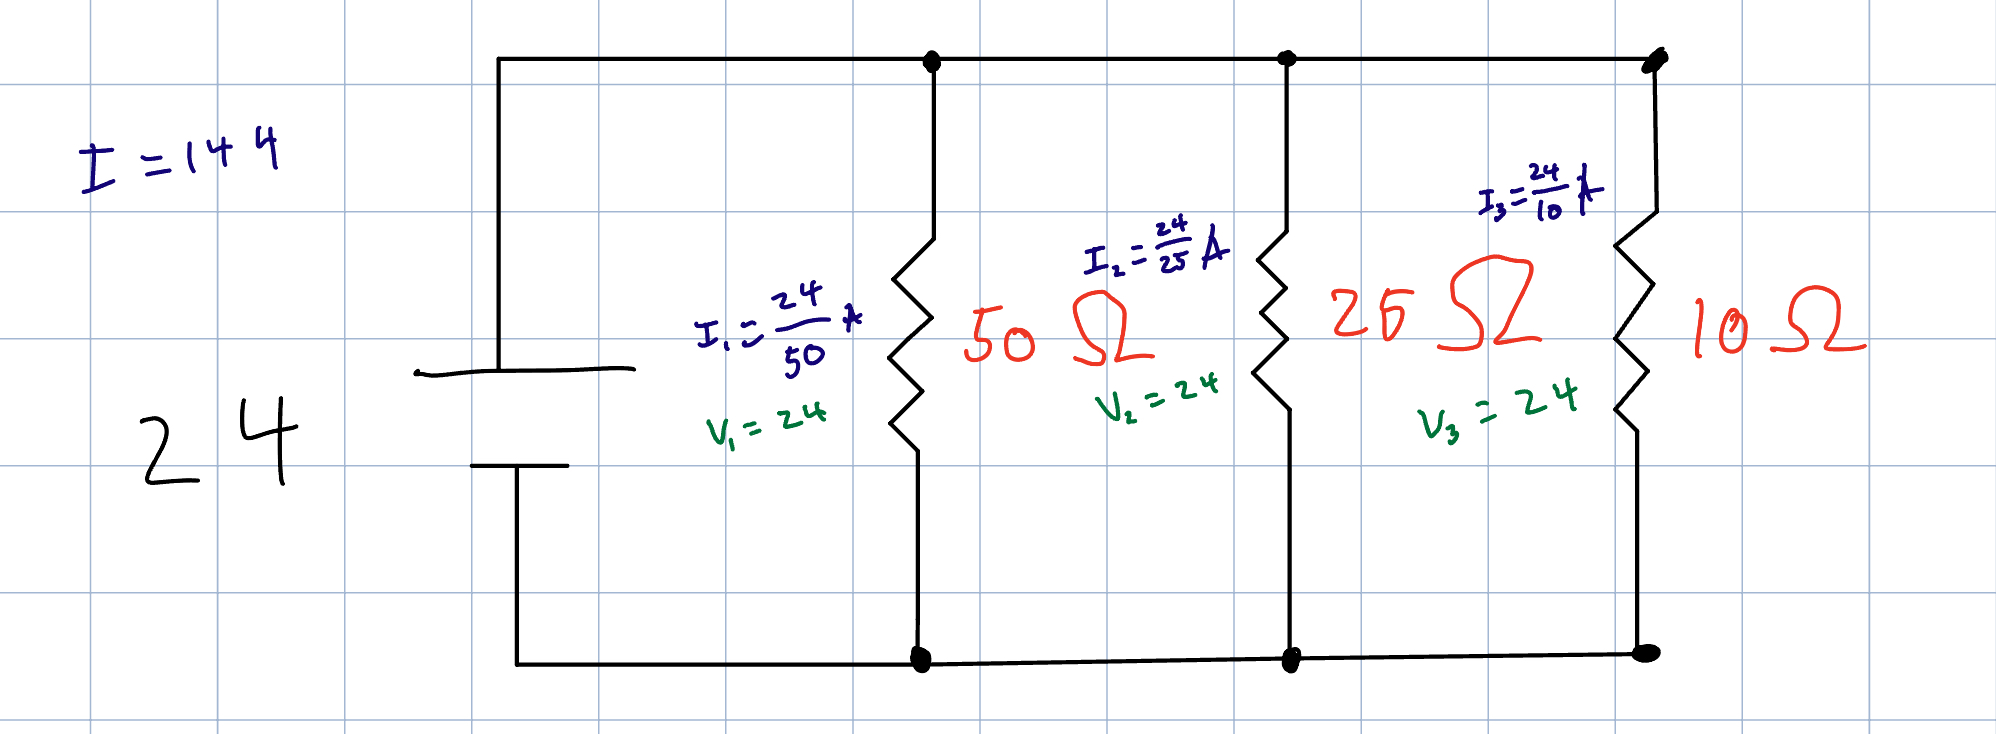 I = 144
24
I₁ = 24/50 A
V₁ = 24
50 Ω
I₂ = 24/25 A
V₂ = 24
25 Ω
I₃ = 24/10 A
V₃ = 24
10 Ω